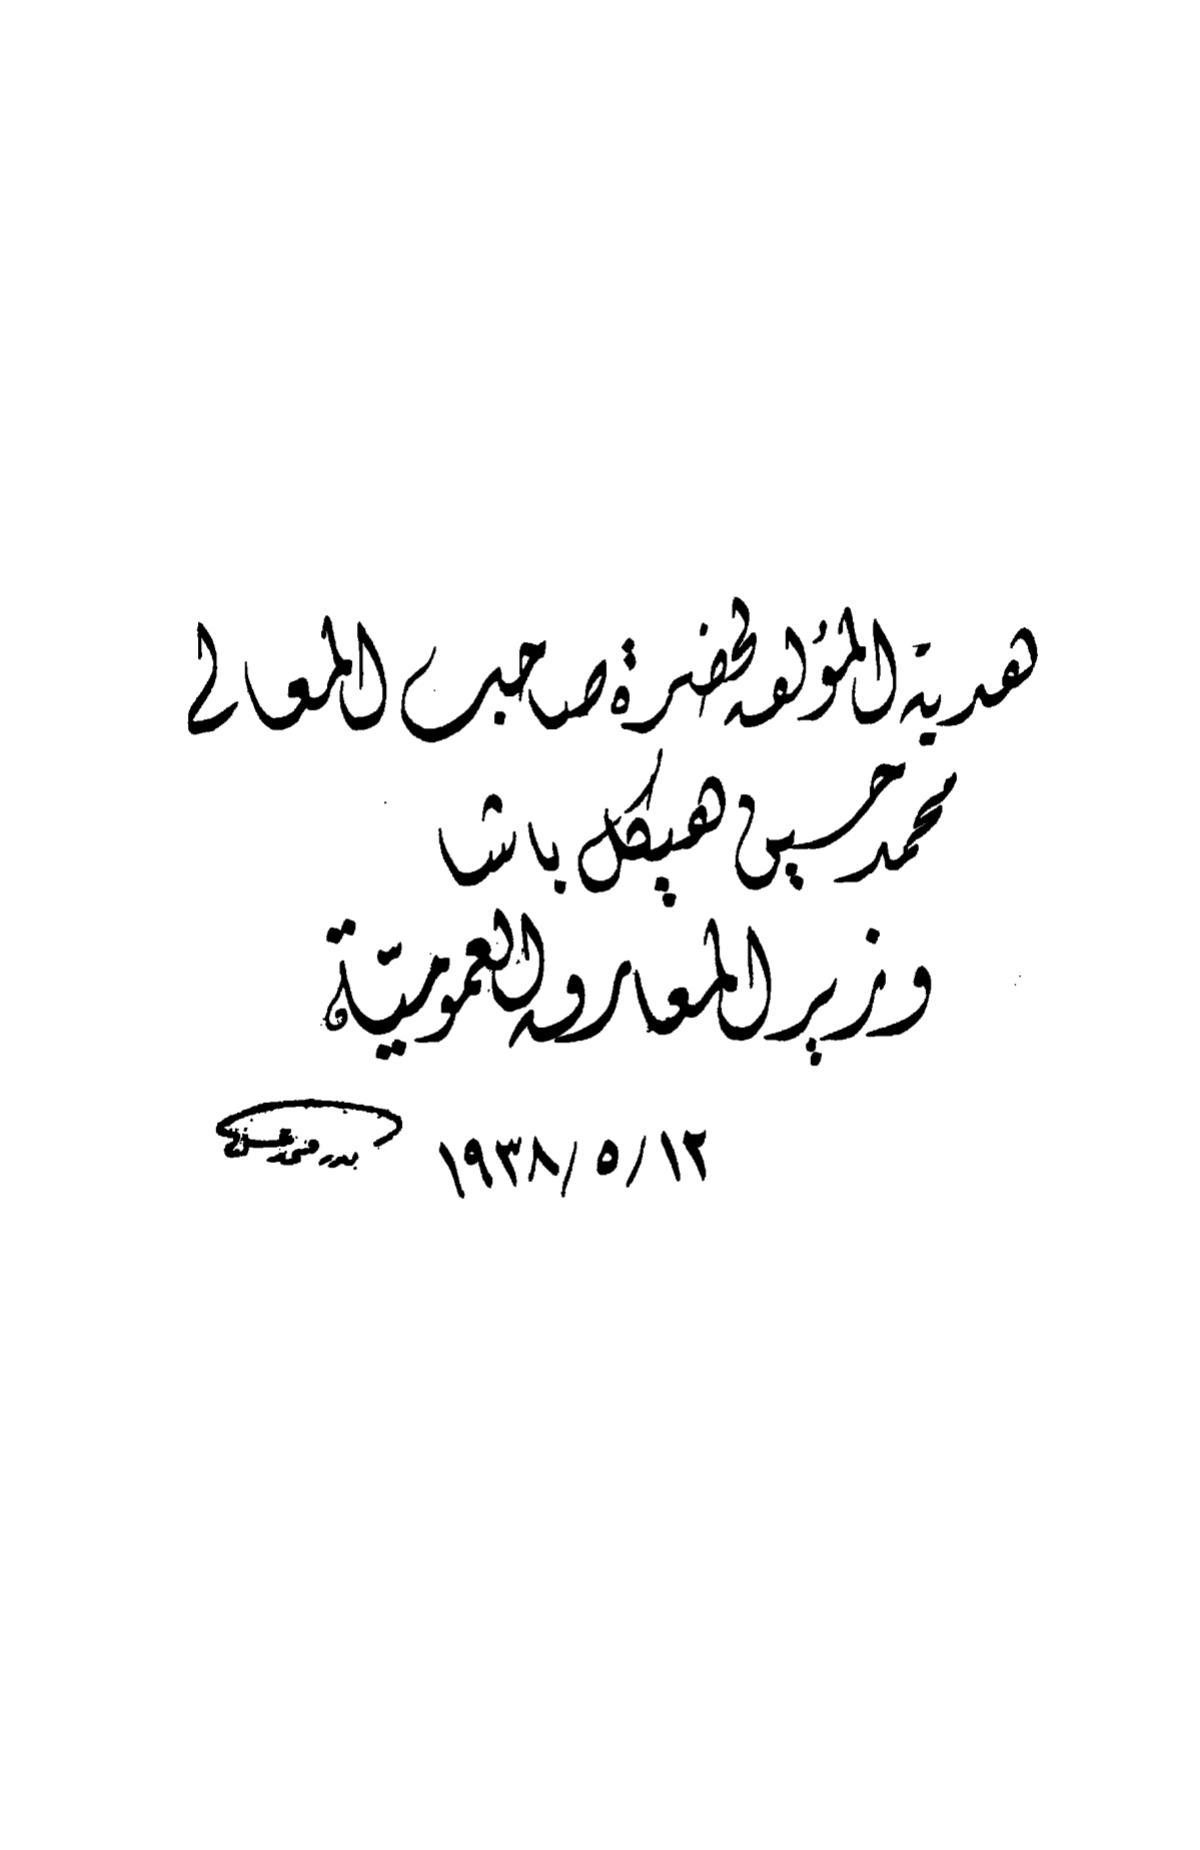 هدية المؤلف لحضرة صاحب المعالي
محمد حسين هيكل باشا
وزير المعارف العموميّة
١٩٣٨/٥/١٢